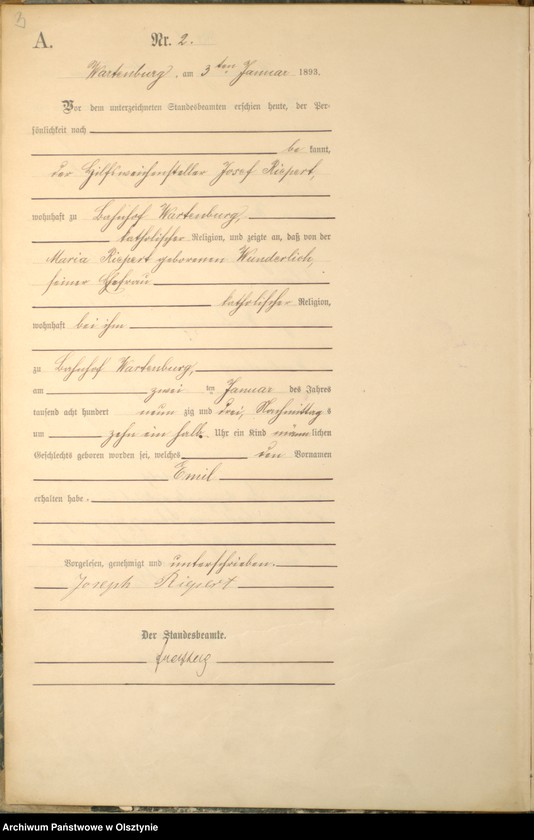 A. Nr. 2.
Wartenburg, am 3ten Januar 1893.
Vor dem unterzeichneten Standesbeamten erschien heute, der Per-
sönlichkeit nach
be kannt,
der Hilfsweichensteller Josef Riepert,
wohnhaft zu Bahnhof Wartenburg,
katholischer Religion, und zeigte an, daß von der
Maria Riepert geborenen Wunderlich,
seiner Ehefrau
katholischer Religion,
wohnhaft bei ihm
zu Bahnhof Wartenburg,
am zwei ten Januar des Jahres
tausend acht hundert neun zig und drei, Nachmittag s
um zehn ein halb Uhr ein Kind männ lichen
Geschlechts geboren worden sei, welches den Vornamen
Emil
erhalten habe.
Vorgelesen, genehmigt und unterschrieben.
Joseph Riepert
Der Standesbeamte.
Archiwum Państwowe w Olsztynie